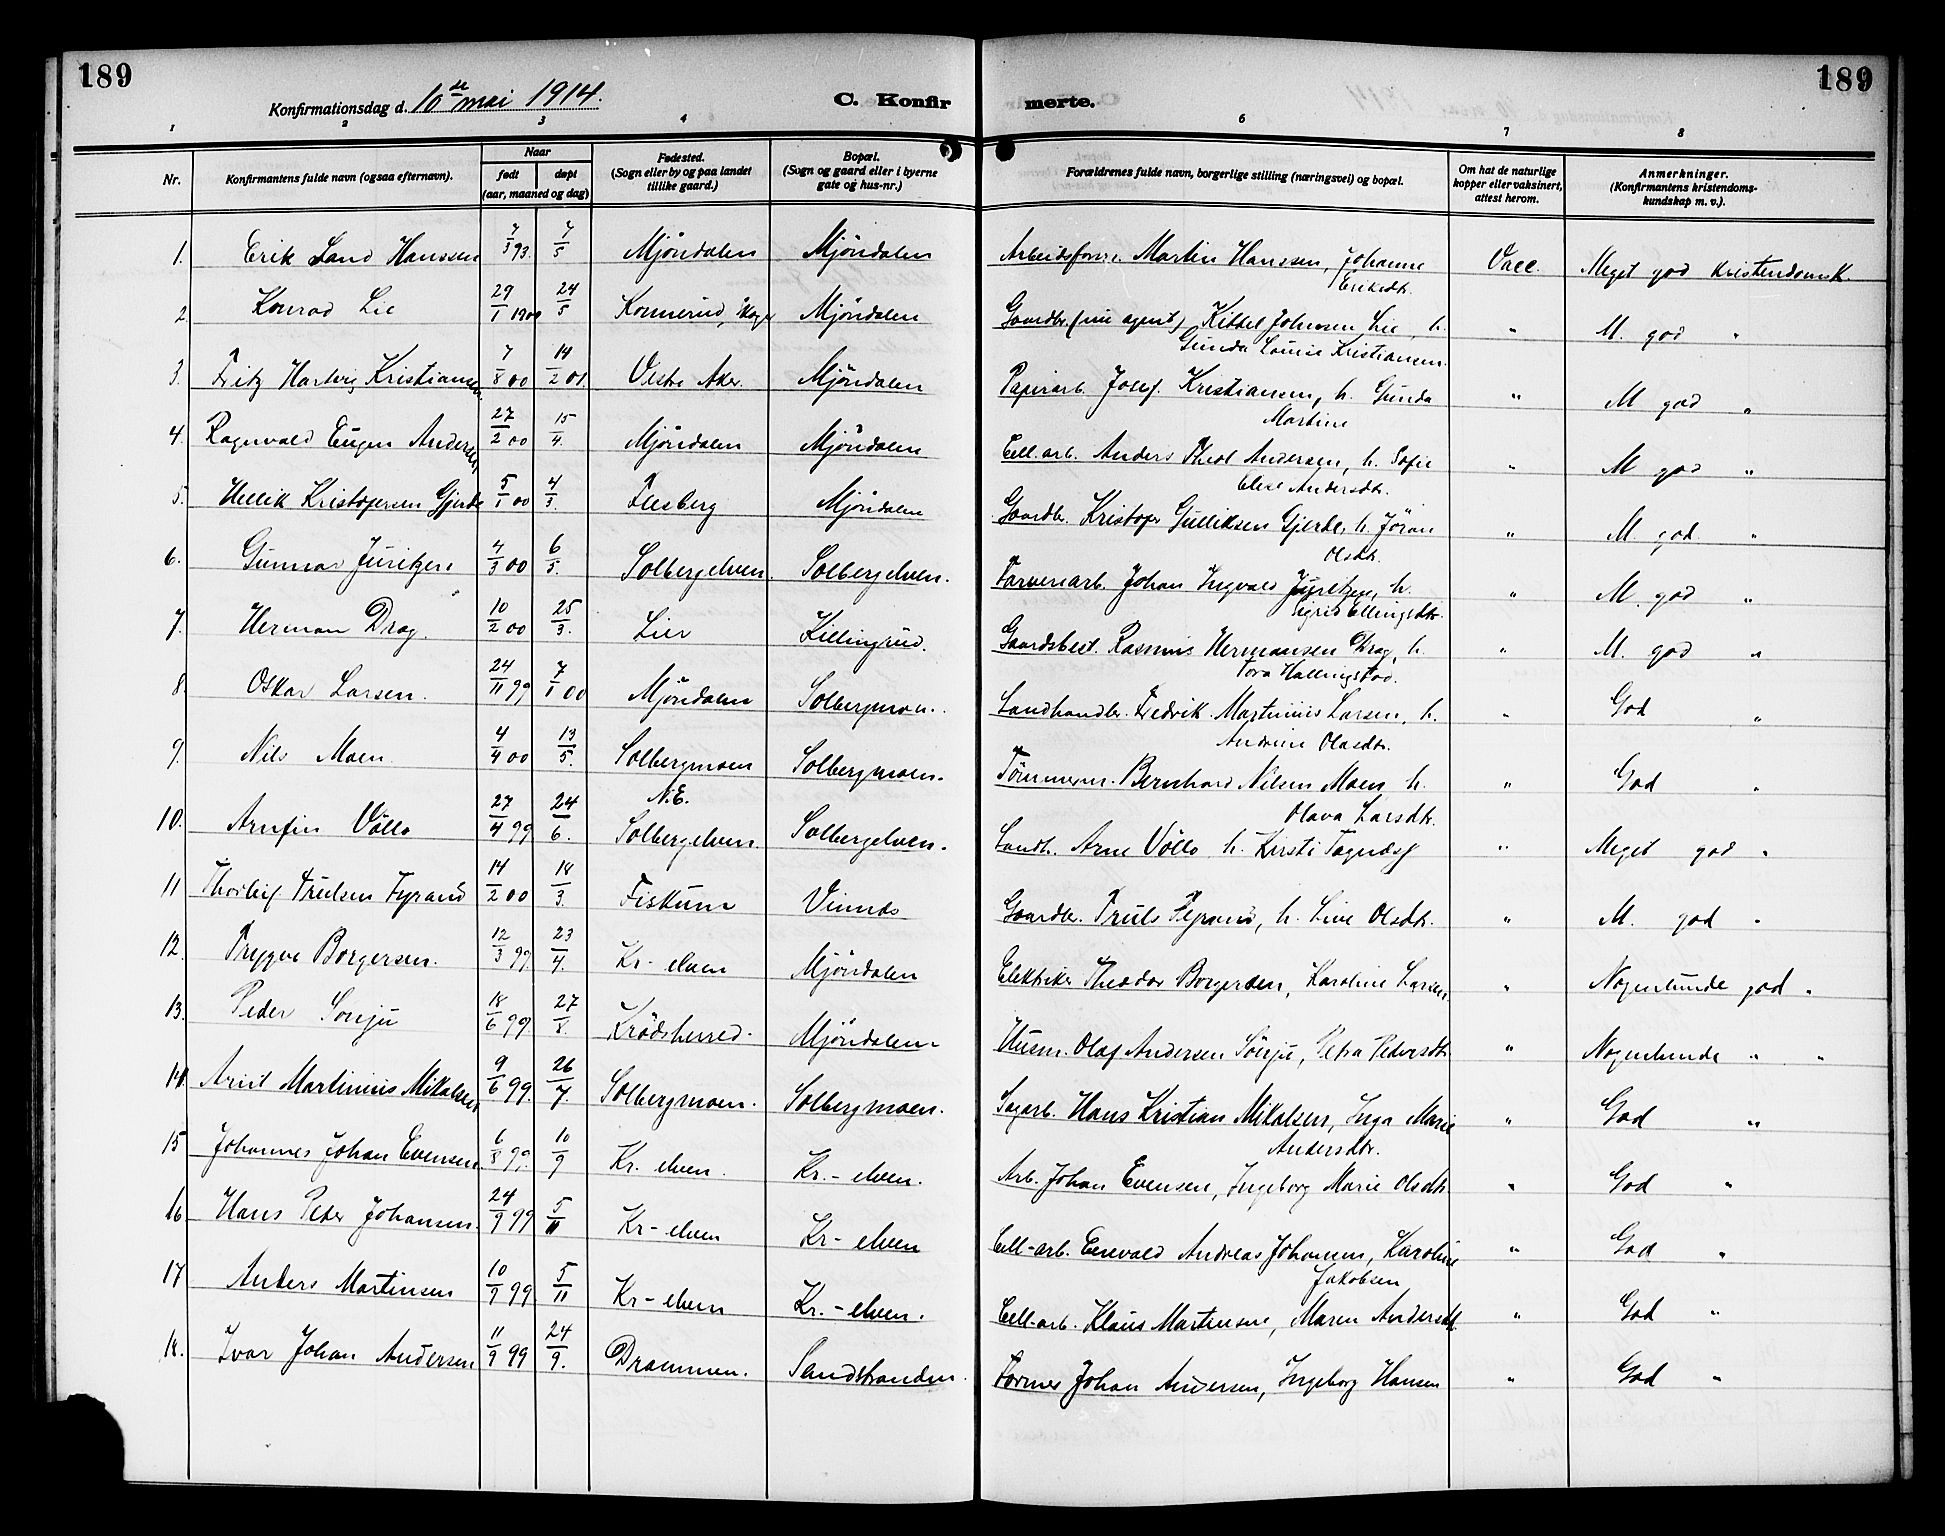 189
Konfirmationsdag d. 10de mai 1914.
C. Konfir merte.
189
1 2 3 4 5 6 7 8
Nr. Konfirmantens fulde navn (ogsaa efternavn). Naar født døpt (aar, maaned og dag) Fødested. (Sogn eller by og paa landet tillike gaard.) Bopæl. (Sogn og gaard eller i byerne gate og hus-nr.) Forældrenes fulde navn, borgerlige stilling (næringsvei) og bopæl. Om hat de naturlige kopper eller vaksinert, attest herom. Anmerkninger. (Konfirmantens kristendoms-kundskap m. v.).
1. Erik Sand Hanssen 7/3 93. 7/5 Mjöndalen Mjöndalen Arbeidsform. Martin Hanssen, Johanne Vacc. Meget god kristendomsk.
Eriksdtr.
2. Konrad Lie 29/1 1900 24/5 Konnerud, Skoger Mjöndalen Gaardbr. (nu agent) Kittel Johnsen Lie, h. " M. god "
Gunda Louise Kristiansen.
3. Fritz Hartvig Kristiansen 7/8 00 14/2 01. Vestre Aker. Mjöndalen Papirarb. Josef. Kristiansen, h. Gunda " M god "
Martine
4. Ragnvald Eugen Andersen, 27/2 00 15/4. Mjöndalen Mjöndalen Cell. arb. Anders Theol Andersen, h. Sofie " M god "
Elise Andersdtr.
5. Hellik Kristofersen Gjerde 5/1 00 4/3. Flesberg Mjöndalen Gaardbr. Kristofer Gulliksen Gjerde, h. Jöran " M. god. "
Olsdtr.
6. Gunnar Juritzen 4/3 00 6/5. Solbergelven. Solbergelven. Farveriarb. Johan Ingvald Juritzen, h. " M. god "
Sigrid Ellingsdtr.
7. Herman Drag. 10/2 00 25/3. Lier Killingrud. Gaardsbest. Rasmus Hermansen Drag, h. " M. god "
Tora Hallingstad.
8. Oskar Larsen. 24/11 99 7/1 00 Mjöndalen Solbergmoen. Landhandler. Fredrik Martinius Larsen, h. " God "
Andrine Olasdtr.
9. Nils Moen. 4/4 00 13/5. Solbergmoen Solbergmoen. Tömmerm. Bernhard Nilsen Moen h. " God "
Olava Larsdtr.
10. Arnfin Völlo 27/4 99 24/6. N. E. Solbergelven. Solbergelven. Landh. Arne Völlo h. Kirsti " Meget god "
11 Thorleif Trulsen Fyrand 14/2 00 18/3. Fiskum Vinnes Gaardbr. Truls Fyrand, h. Live Olsdtr. " M. god "
12. Trygve Borgersen. 12/3 99. 23/4. Kr- elven Mjöndalen Elektriker Theodor Borgersen, Karoline Larsen. " Nogenlunde god "
13. Peder Sonju 18/6 99. 27/8. Krödsherred. Mjöndalen Husm. Olaf Andersen Sönju, Petra Pedersdtr. " Nogenlunde " "
14. Arnt Martinius Mikalsen 9/6 99. 26/7. Solbergmoen. Solbergmoen. Sagarb. Hans Kristian Mikalsen, Inga Marie " God "
Andersdtr.
15 Johannes Johan Evensen. 6/8 99. 10/9 Kr. elven. Kr. - elven. Arb. Johan Evensen, Ingeborg Marie Olsdtr. " God "
16 Hans Peter Johansen. 24/9 99 5/11 Kr- elven Kr- elven Cell-arb. Enevald Andreas Johansen, Karoline " God "
Jakobsen
17 Anders Martinsen 10/9 99 5/11 Kr- elven Kr. - elven. Cell. arb. Klaus Martinsen, Maren Andersdtr. " God "
18. Ivar Johan Andersen 11/9 99 24/9. Drammen. Sandstranden. Former Johan Andersen, Ingeborg Hansen " God "